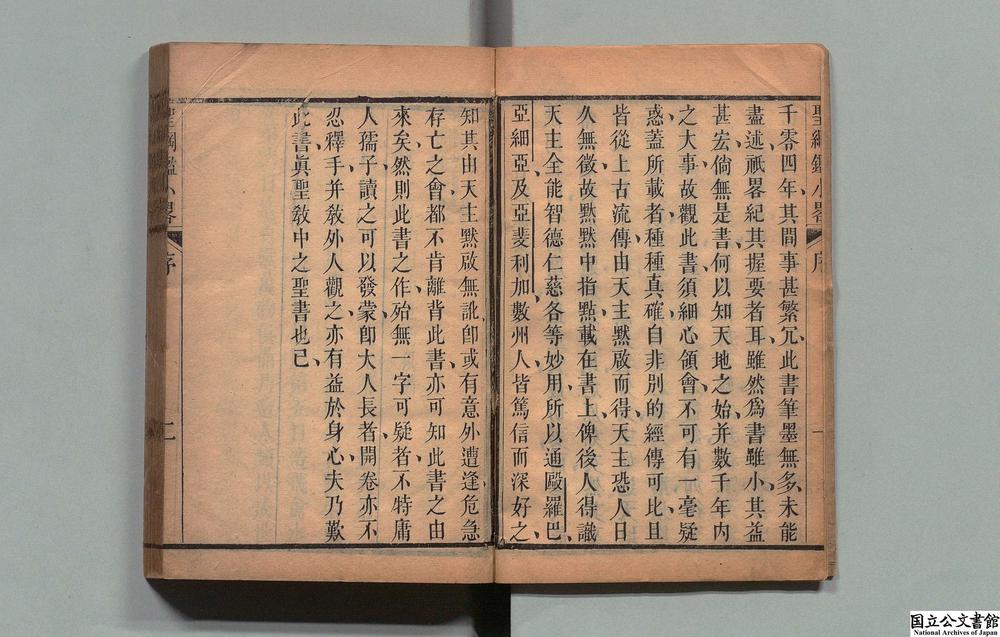 聖綱鑑小畧 序 一
千零四年、其間事甚繁冗、此書筆墨無多、未能
盡述、祇畧紀其握要者耳、雖然為書雖小、其益
甚宏、倘無是書、何以知天地之始、并數千年內
之大事、故觀此書、須細心領會、不可有一毫疑
惑、蓋所載者、種種真確、自非別的經傳可比、且
皆從上古流傳、由天主黙啟而得、天主恐人日
久無徵、故黙黙中指點、載在書上、俾後人得識
天主全能智德仁慈各等妙用、所以通歐羅巴、
亞細亞、及亞斐利加、數州人、皆篤信而深好之、
知其由天主黙啟無訛、卽或有意外遭逢、危急
存亡之會、都不肯離背此書、亦可知此書之由
來矣、然則此書之作、殆無一字可疑者、不特庸
人孺子讀之、可以發蒙、卽大人長者、開卷亦不
忍釋手、并敎外人觀之、亦有益於身心、夫乃歎
此書眞聖敎中之聖書也已、
聖綱鑑小畧 序 二
国立公文書館
National Archives of Japan